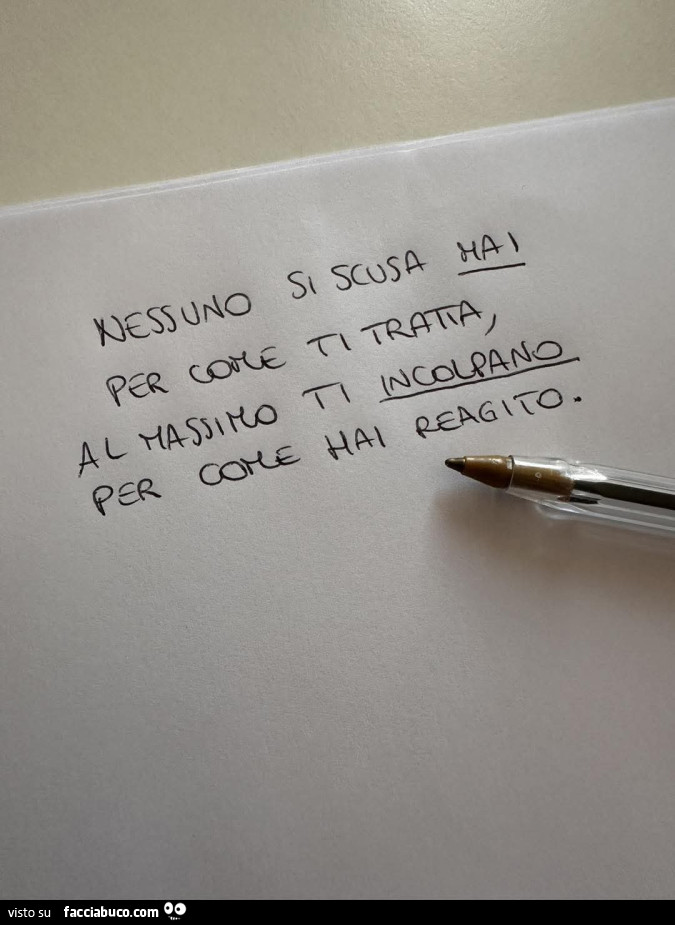 NESSUNO SI SCUSA MAI
PER COME TI TRATTA,
AL MASSIMO TI INCOLPANO
PER COME HAI REAGITO.
visto su facciabuco.com